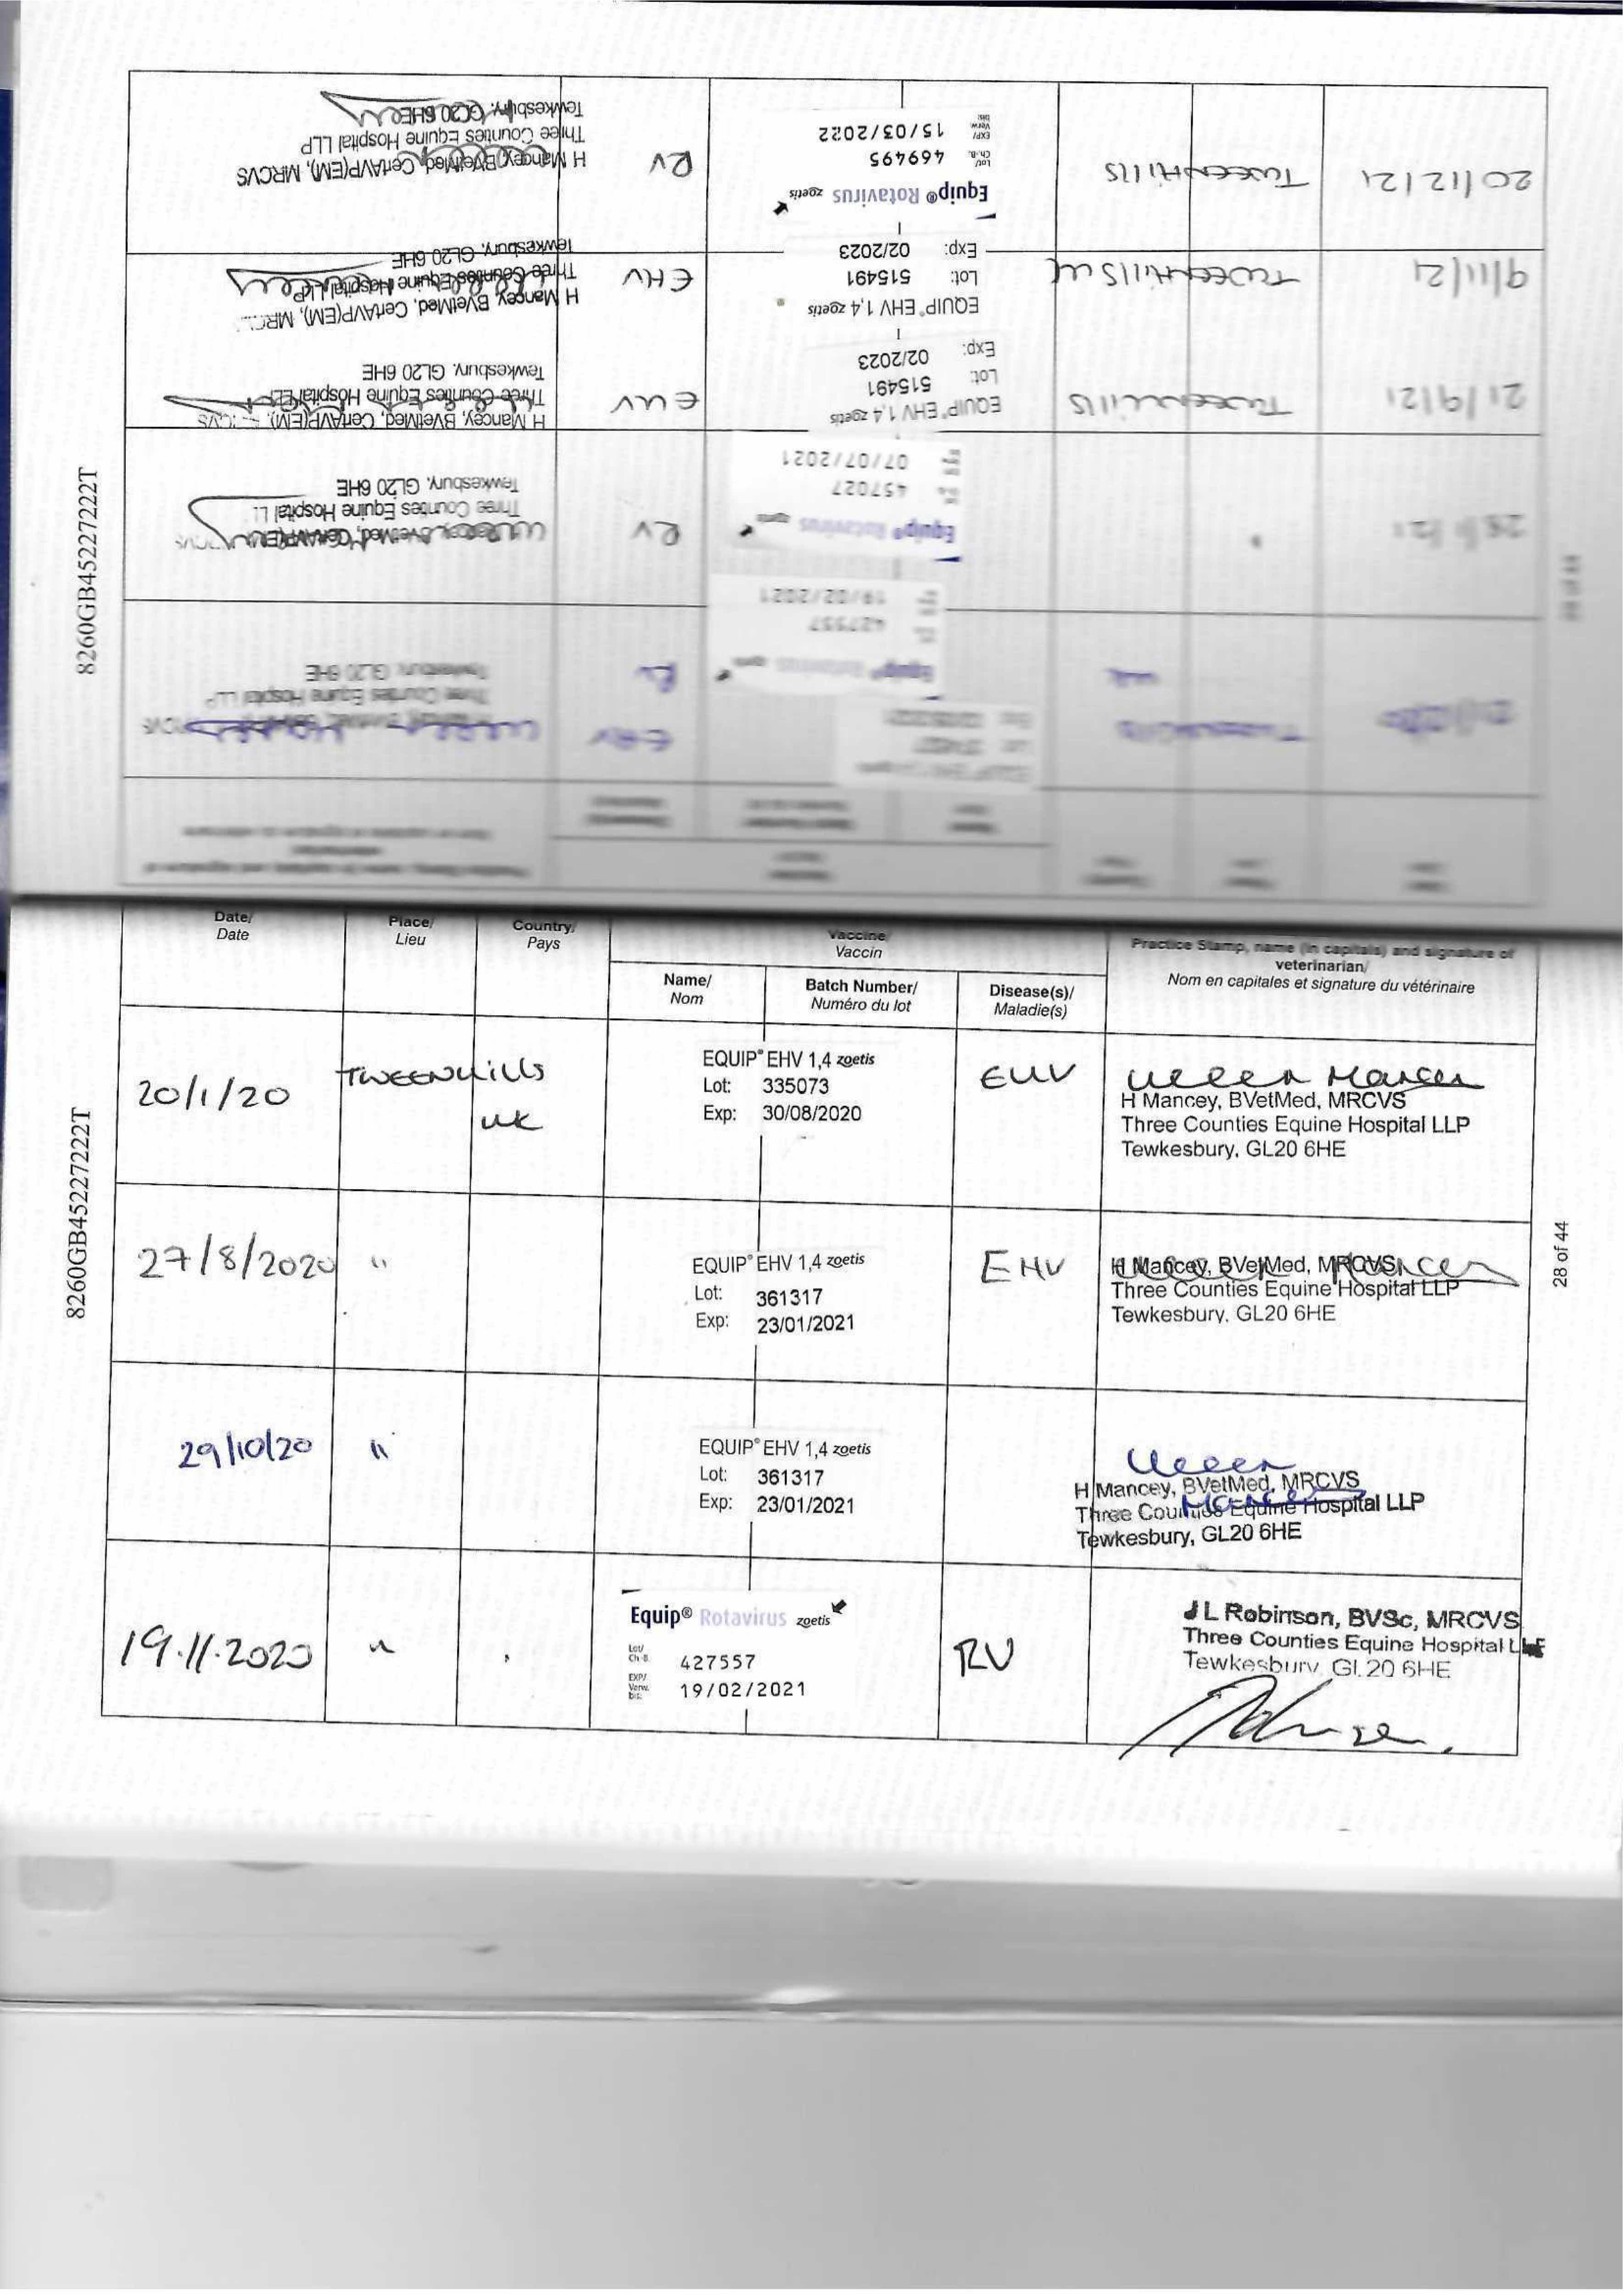 8260GB45227222T
20/12/21
Tweenhills
Equip® Rotavirus zoetis
Lot/
Ch.-B.
469495
EXP/
Verw.
bis:
15/03/2022
RV
H Mancey, BVetMed, CertAVP(EM), MRCVS
Three Counties Equine Hospital LLP
Tewkesbury, GL20 6HE
9/11/21
Tweenhills UK
EQUIP® EHV 1,4 zoetis
Lot: 515491
Exp: 02/2023
EHV
H Mancey, BVetMed, CertAVP(EM), MRC
Three Counties Equine Hospital LLP
Tewkesbury, GL20 6HE
21/9/21
Tweenhills
EQUIP® EHV 1,4 zoetis
Lot: 515491
Exp: 02/2023
EHV
H Mancey, BVetMed, CertAVP(EM), CVS
Three Counties Equine Hospital LLP
Tewkesbury, GL20 6HE
Equip® Rotavirus zoetis
457027
07/07/2021
RV
Mancey, BVetMed, CertAVP(EM), MRCVS
Three Counties Equine Hospital LL
Tewkesbury, GL20 6HE
Tweenhills
UK
Equip® Rotavirus zoetis
427557
19/02/2021
EHV
RV
Three Counties Equine Hospital LLP
Tewkesbury, GL20 6HE
Date/
Date
Place/
Lieu
Country/
Pays
Vaccine
Vaccin
Practice Stamp, name (in capitals) and signature of
veterinarian/
Nom en capitales et signature du vétérinaire
Name/
Nom
Batch Number/
Numéro du lot
Disease(s)/
Maladie(s)
20/1/20
TWEENHILLS
UK
EQUIP® EHV 1,4 zoetis
Lot: 335073
Exp: 30/08/2020
EHV
Helen Mancey
H Mancey, BVetMed, MRCVS
Three Counties Equine Hospital LLP
Tewkesbury, GL20 6HE
8260GB45227222T
27/8/2020
"
EQUIP® EHV 1,4 zoetis
Lot: 361317
Exp: 23/01/2021
EHV
H Mancey, BVetMed, MRCVS
Three Counties Equine Hospital LLP
Tewkesbury, GL20 6HE
28 of 44
29/10/20
"
EQUIP® EHV 1,4 zoetis
Lot: 361317
Exp: 23/01/2021
Helen
Mancey
H Mancey, BVetMed, MRCVS
Three Counties Equine Hospital LLP
Tewkesbury, GL20 6HE
19.11.2020
"
Equip® Rotavirus zoetis
Lot/
Ch.-B.
427557
EXP/
Verw.
bis:
19/02/2021
RV
J L Robinson, BVSc, MRCVS
Three Counties Equine Hospital LLP
Tewkesbury, GL20 6HE